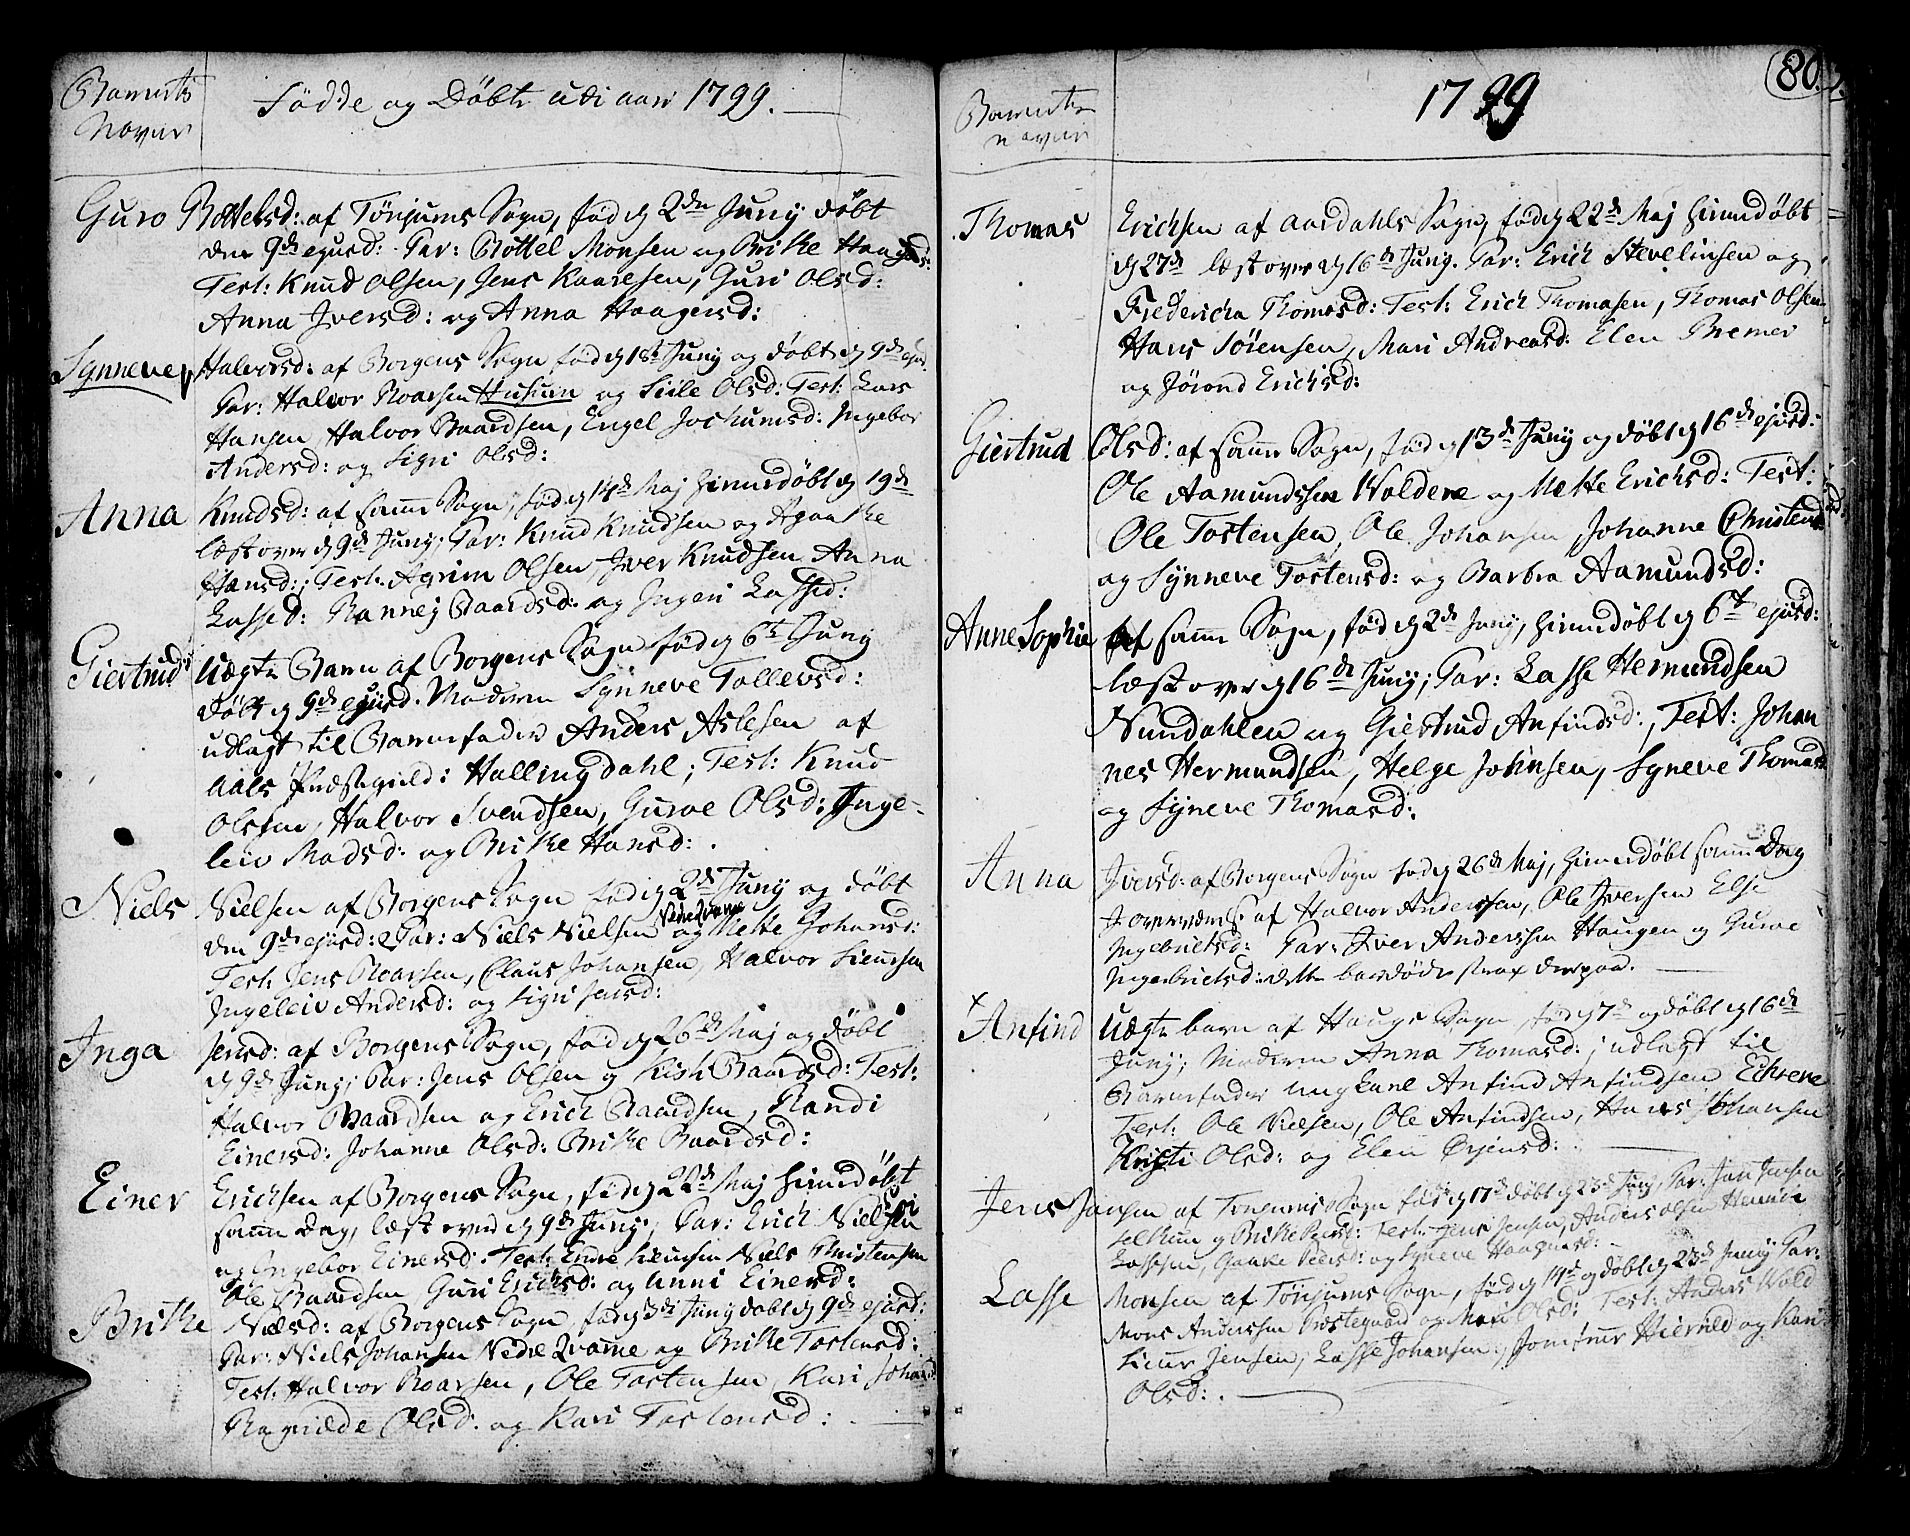 Barnets
Navn
Födde og Döbte udi aar 1799.
Guro Bottelsd: af Tönjums Sogn, föd d 2den Juny döbt
den 9de ejusd: Par: Bottel Monsen og Brithe Haagensd:
Test: Knud Olsen, Jens Kaaresen, Guri Olsd:
Anna Iversd: og Anna Haagensd:
Synneve Halvorsd: af Borgens Sogn föd d 1st Juny og döbt d 9de ejusd.
Par: Halvor Roarsen Husum og Sille Olsd: Test: Lars
Hansen, Halvor Baardsen, Engel Jochumsd: Ingebor
Andersd: og Sigri Olsd:
Anna Knudsd: af samme Sogn, föd d 14de Maj hiemdöbt d 19de
læst over d 9de Juny; Par: Knud Knudsen og Agaathe
Hansd:; Test: Agrim Olsen, Iver Knudsen Anna
Lassed: Rannej Baardsd: og Ingeri Lassed:
Giertrud Uægte Barn af Borgens Sogn föd d 6te Juny
döbt d 9de ejusd. Moderen Synneve Tollevsd:
udlagt til Barnefader Anders Aslesen af
Aals Præstegield: Hallingdahl; Test: Knud
Olsen, Halvor Svendsen, Gurve Olsd: Inge-
leiv Madsd: og Brithe Hansd:
Niels Nielsen af Borgens Sogn föd d 2de Juny og döbt
den 9de ejusd: Par: Niels Nielsen Nedreqvame og Mette Johansd:
Test: Jens Roarsen, Claus Johansen, Halvor Siursen
Ingeleiv Andersd: og Sigri Jensd:
Inga Jensd: af Borgens Sogn, föd d 26de Maj og döbt
d 9de Juny; Par: Jens Olsen og Kisti Baardsd: Test:
Halvor Baardsen og Erich Baardsen, Randi
Einersd: Johanne Olsd: Brithe Baardsd:
Einer Erichsen af Borgens Sogn, föd d 22de Maj hiemdöbt
samme Dag, læst over d 9de Juny, Par: Erich Nielsen
og Ingebor Einersd: Test: Endre Siursen Niels Christensen
Ole Baardsen Guri Erichsd: og Anni Einersd:
Brithe Nielsd: af Borgens Sogn, föd d 3de Juny döbt d 9de ejusd:
Par: Niels Johansen Nedre Qvame og Brithe Tostensd:
Test: Halvor Roarsen, Ole Tostensen Kari Johansd
Ragnilde Olsd: og Kari Tostensd:
80.
Barnets
navn
1799
Thomas Erichsen af Aardahls Sogn, föd d 22de Maj hiemdöbt
d 27de læst over d 16de Juny. Par: Erich Stevelinsen og
Fredericha Thomasd: Test: Erich Thomasen, Thomas Olsen
Hans Sörensen, Mari Andreasd: Elen Bremer
og Jörond Erichsd:
Giertrud Olsd: af samme Sogn, föd d 13de Juny og döbt d 16de ejusd:
Ole Aamundssen Voldene og Mette Erichsd: Test:
Ole Tostensen, Ole Johansen Johanne Christensd
og Synneve Tostensd: og Barbra Aamundsd:
Anne Sophie af samme Sogn, föd d 2de Juny, hiemdöbt d 6te ejusd:
læst over d 16de Juny; Par: Lasse Hermundsen
Nundahlen og Giertrud Anfindsd:, Test: Johan
nes Hermundsen, Helge Johnsen, Syneve Thomasd
og Syneve Thomasd:
Anna Iversd: af Borgens Sogn föd d 26de Maj, hiemdöbt samme Dag
I overværelse af Halvor Anderssen, Ole Iversen Else
Ingebrietsd: Par: Iver Anderssen Haugen og Gurve
Ingebrietsd: dette barn döde strax derpaa.
Anfind Uægte barn af Hauge Sogn, föd d 7de og döbt d 16de
Juny; Moderen Anna Thomasd:; udlagt til
Barnefader ungkarl Anfind Anfindsen Echrene
Test: Ole Nielsen, Ole Anfindsen, Hans Johansen
Kristi Olsd: og Elen Örjensd:
Jens Jansen af Tönjums Sogn föd d 17de döbt d 23de Juny, Par: Jan Jensen
og Brithe Test: Jens Jensen, Anders Olsen
Lassesen, Gaathe Pedersd: og Syneve Haagensd:
Lasse Monsen af Tönjums Sogn, föd d 19de og döbt d 23de Juny Par:
Mons Anderssen Præstegaard og Mari Olsd: Test: Anders Vold
Siur Jensen, Lasse Johansen, Jomfrue Hierild og Kari
Olsd: